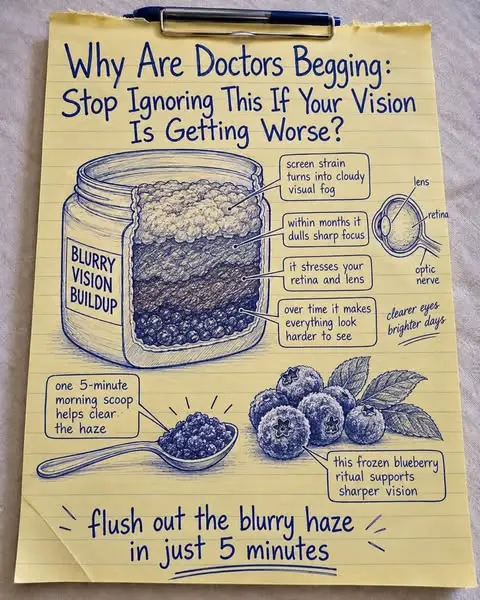 Why Are Doctors Begging:
Stop Ignoring This If Your Vision
Is Getting Worse?
BLURRY
VISION
BUILDUP
screen strain
turns into cloudy
visual fog
within months it
dulls sharp focus
it stresses your
retina and lens
over time it makes
everything look
harder to see
lens
retina
optic
nerve
clearer eyes
brighter days
one 5-minute
morning scoop
helps clear
the haze
this frozen blueberry
ritual supports
sharper vision
flush out the blurry haze
in just 5 minutes